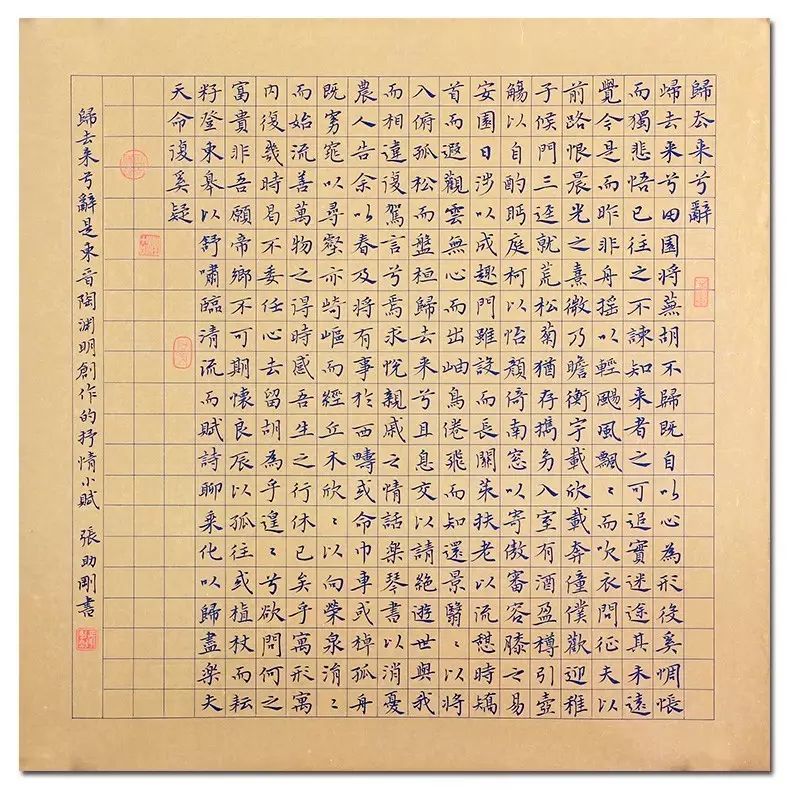 歸去来兮辭
歸去来兮田園将蕪胡不歸既自以心為形役奚惆悵
而獨悲悟已往之不諫知来者之可追實迷途其未遠
覺今是而昨非舟摇以輕颺風飄〻而吹衣問征夫以
前路恨晨光之熹微乃瞻衡宇載欣載奔僮僕歡迎稚
子候門三逕就荒松菊猶存攜幼入室有酒盈樽引壺
觴以自酌眄庭柯以怡顏倚南窓以寄傲審容膝之易
安園日涉以成趣門雖設而長關策扶老以流憩時矯
首而遐觀雲無心而出岫鳥倦飛而知還景翳〻以将
入俯孤松而盤桓歸去来兮且息交以請絕遊世與我
而相違復駕言兮焉求悅親戚之情話樂琴書以消憂
農人告余以春及将有事於西疇或命巾車或棹孤舟
既窈窕以尋壑亦崎嶇而經丘木欣〻以向榮泉涓〻
而始流善萬物之得時感吾生之行休已矣乎寓形寓
内復幾時曷不委任心去留胡為乎遑〻兮欲問何之
富貴非吾願帝鄉不可期懷良辰以孤往或植杖而耘
耔登東皋以舒嘯臨清流而賦詩聊乘化以歸盡樂夫
天命復奚疑
歸去来兮辭是東晋陶渊明創作的抒情小賦 張助剛書